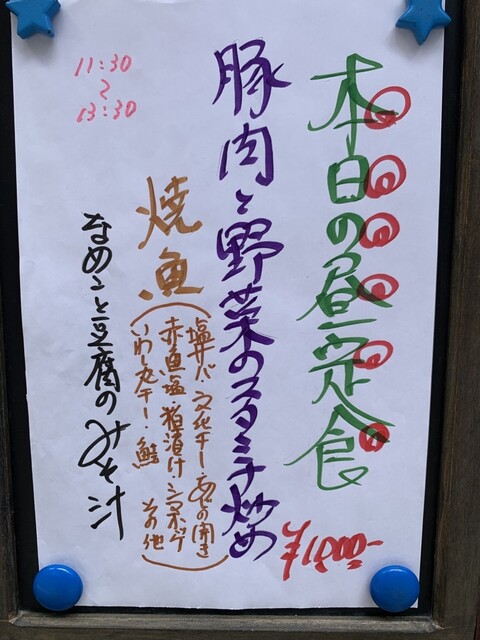 本日の昼定食
¥1000-
豚肉と野菜のスタミナ炒め
焼魚
(塩サバ・文化サバ・あじの開き
赤魚塩・粕漬け・シマホッケ
いわし丸干し・鮭 その他)
なめこと豆腐のみそ汁
11:30
〜
13:30